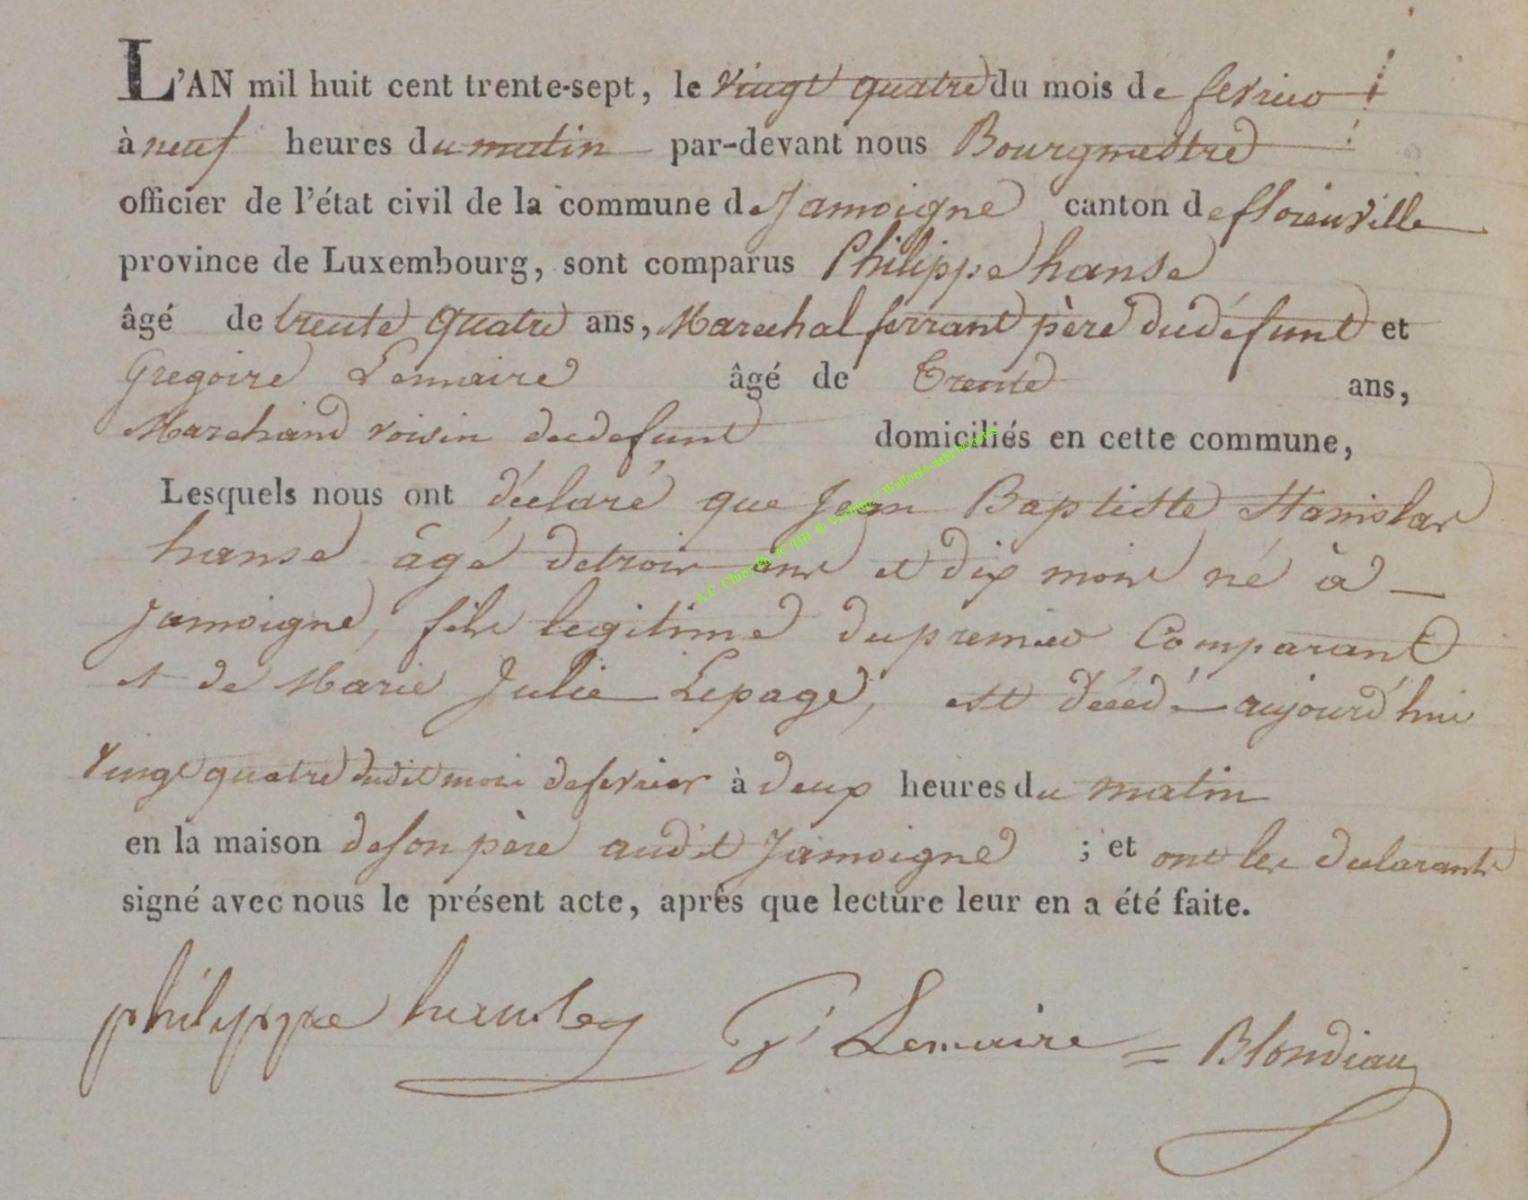 L'AN mil huit cent trente-sept, le vingt quatre du mois de fevrier
à neuf heures du matin par-devant nous Bourgmestre
officier de l'état civil de la commune de Jamoigne canton de florenville
province de Luxembourg, sont comparus Philippe hanse
âgé de trente quatre ans, Marechal ferrant père du défunt et
Gregoire Lemaire âgé de Trente ans,
Marchand voisin du defunt domiciliés en cette commune,
Lesquels nous ont déclaré que Jean Baptiste Stanislas
hanse âgé de trois ans et dix mois né à
Jamoigne, fils legitime du premier Comparant
et de Marie Julie Lepage, est décédé aujourd'hui
vingt quatre dudit mois de fevrier à deux heures du matin
en la maison de son père audit Jamoigne ; et ont les declarants
signé avec nous le présent acte, après que lecture leur en a été faite.
philippe G Lemaire = Blondiau